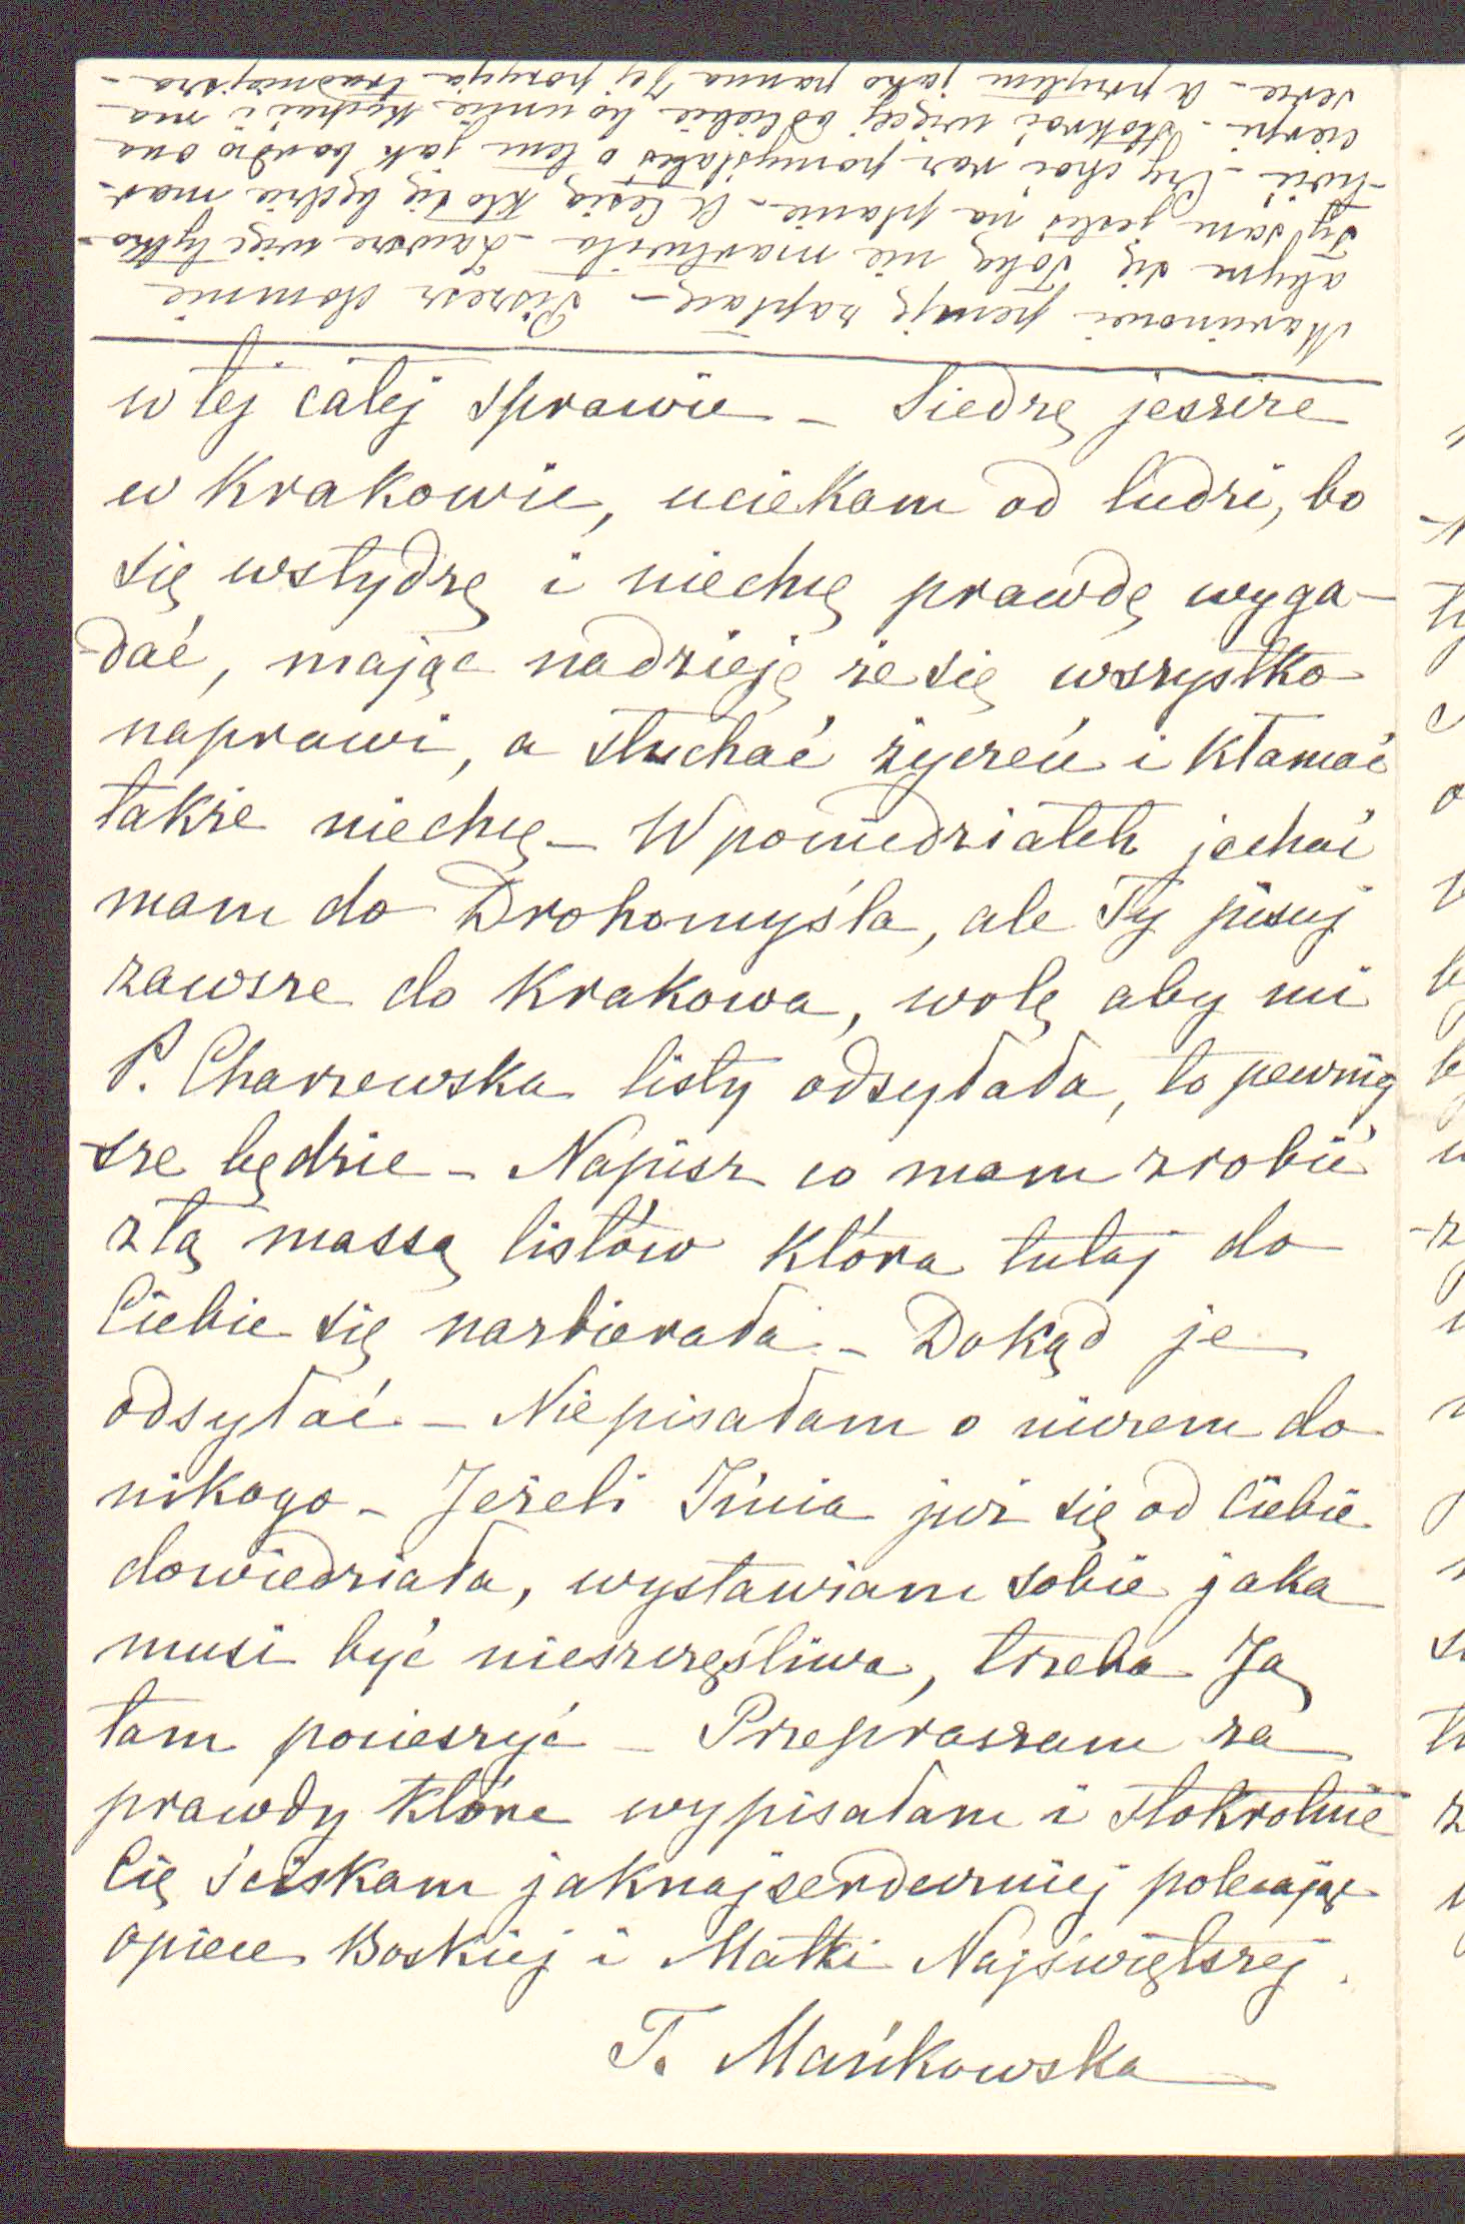 w tej całej sprawie – Siedzę jeszcze
w Krakowie, uciekam od ludzi, bo
się wstydzę i niechcę prawdę wyga-
-dać, mając nadzieję że się wszystko
naprawi, a słuchać życzeń i kłamać
także niechcę – W poniedziałek jechać
mam do Drohomyśla, ale Ty pisuj
zawsze do Krakowa, wolę aby mi
P. Charzewska listy odsyłała, to pewnię
-sze będzie – Napisz co mam zrobić
z tą massą listów która tutaj do
Ciebie się nazbierała – Dokąd je
odsyłać – Nie pisałam o niczem do
nikogo – Jeżeli Inia już się od Ciebie
dowiedziała, wystawiam sobie jaka
musi być nieszczęśliwa, trzeba Ją
tam pocieszyć – Przepraszam za
prawdy które wypisałam i stokrotnie
Cię ściskam jaknajserdeczniej polecając
opiece Boskiej i Matki Najświętszej.
T. Mańkowska
pensję zapłacę – Piszesz do mnie
abym się Tobą nie martwiła – Zawsze więc tylko
Ty sam jesteś na planie – A Cesią kto się będzie mar-
-twić – Czy choć raz pomyślałeś o tem jak bardzo ona
cierpi – Stokroć więcej od Ciebie bo umie kochać i ma
serce – A przytem jako panna Jej pozycja trudniejsza –